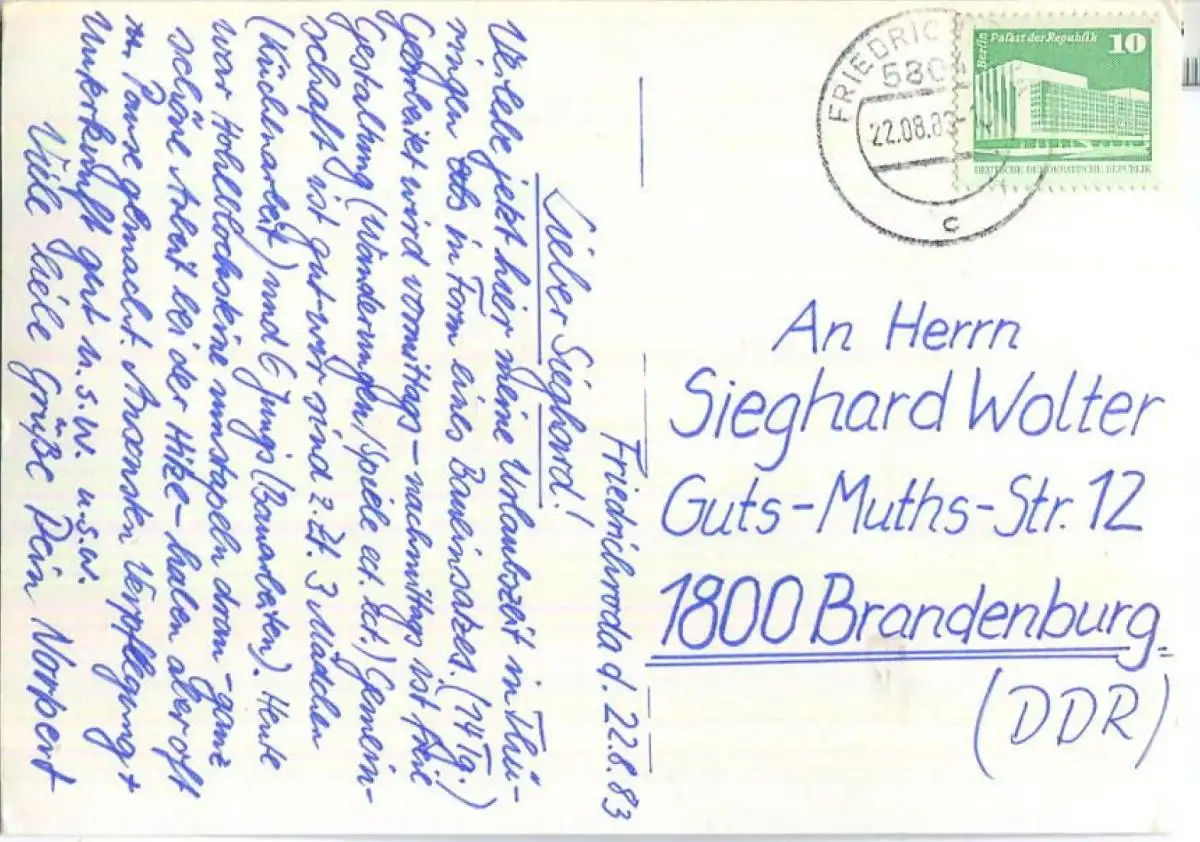 Friedrichroda d. 22.8.83
Lieber Sieghard!
Verlebe jetzt hier meine Urlaubszeit in Thü-
ringen in Form eines Baueinsatzes. (14 Tg.)
Gearbeitet wird vormittags - nachmittags ist freie
Gestaltung (Wanderungen, Spiele ect. ect.) Gemein-
schaft ist gut - wir sind z. Zt. 3 Mädchen
(Küchenarbeit) und 6 Jungs (Bauarbeiten). Heute
war Hohlblocksteine umstapeln dran - ganz
schöne Arbeit bei der Hitze - haben aber oft
Pause gemacht. Ansonsten Verpflegung +
Unterkunft gut u.s.w. u.s.w.
Viele liebe Grüße Dein Norbert
FRIEDRIC
580
22.08.83
c
Berlin Palast der Republik 10
DEUTSCHE DEMOKRATISCHE REPUBLIK
An Herrn
Sieghard Wolter
Guts-Muths-Str. 12
1800 Brandenburg
(DDR)